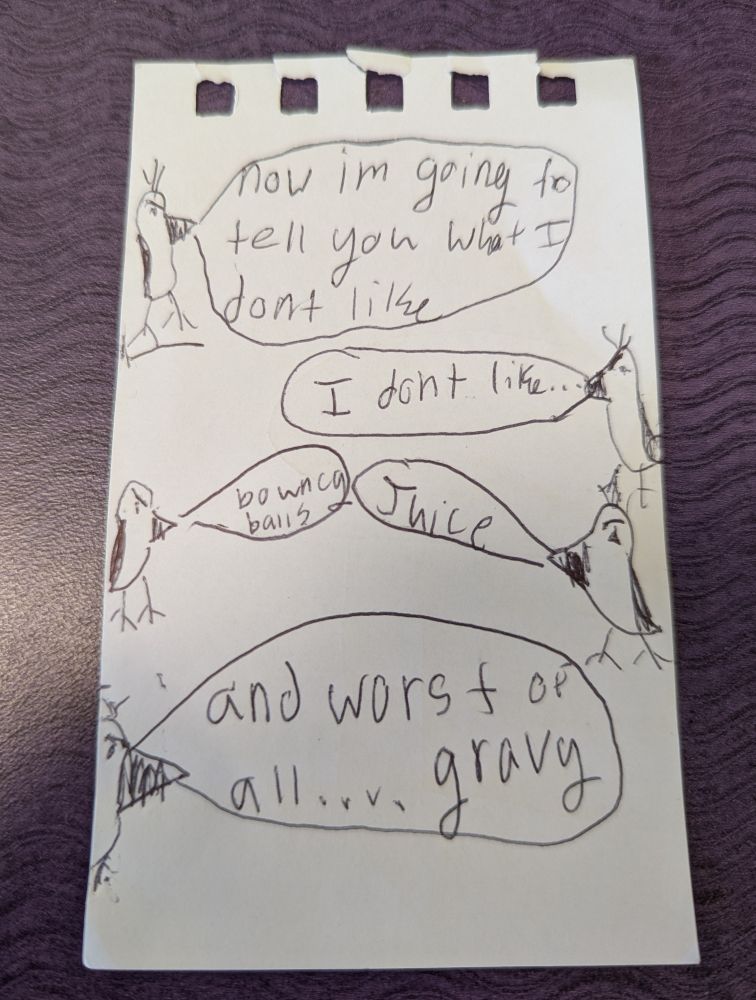 now im going to
tell you what I
dont like
I dont like...
bowncy
balls
Juice
and worst of
all..... gravy